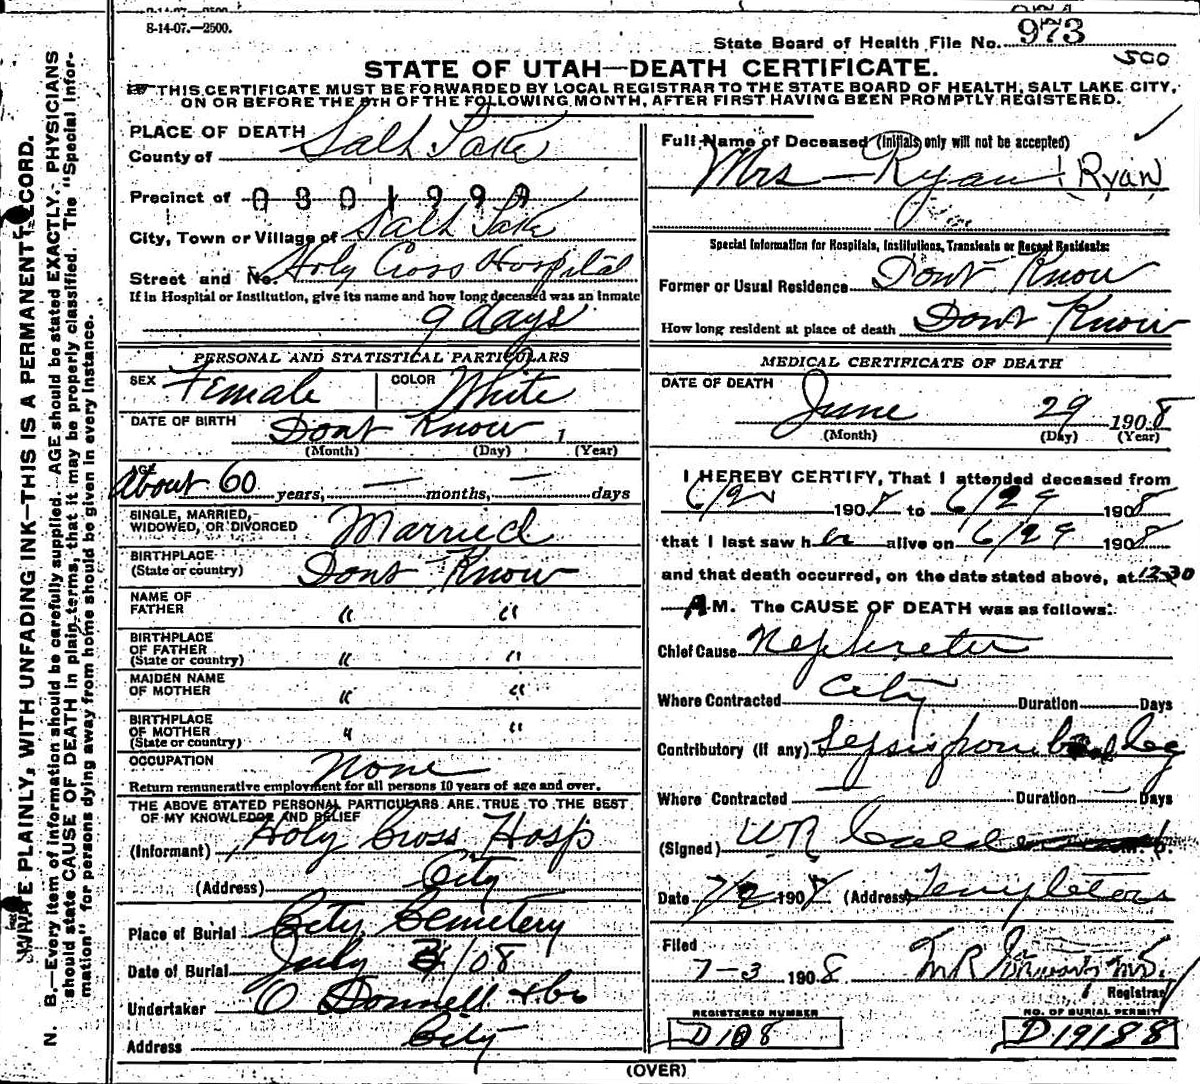 8-14-07.—2500.
State Board of Health File No. 973
500
STATE OF UTAH—DEATH CERTIFICATE.
THIS CERTIFICATE MUST BE FORWARDED BY LOCAL REGISTRAR TO THE STATE BOARD OF HEALTH, SALT LAKE CITY,
ON OR BEFORE THE 5TH OF THE FOLLOWING MONTH, AFTER FIRST HAVING BEEN PROMPTLY REGISTERED.
WRITE PLAINLY, WITH UNFADING INK—THIS IS A PERMANENT RECORD.
N. B.—Every item of information should be carefully supplied. AGE should be stated EXACTLY. PHYSICIANS
should state CAUSE OF DEATH in plain terms, that it may be properly classified. The "Special Infor-
mation" for persons dying away from home should be given in every instance.
PLACE OF DEATH
County of Salt Lake
Precinct of 0301999
City, Town or Village of Salt Lake
Street and No. Holy Cross Hospital
If in Hospital or Institution, give its name and how long deceased was an inmate
9 days
PERSONAL AND STATISTICAL PARTICULARS
SEX Female COLOR White
DATE OF BIRTH Dont Know 1
(Month) (Day) (Year)
AGE About 60 years, — months, — days
SINGLE, MARRIED,
WIDOWED, OR DIVORCED Married
BIRTHPLACE
(State or country) Dont Know
NAME OF
FATHER " "
BIRTHPLACE
OF FATHER
(State or country) " "
MAIDEN NAME
OF MOTHER " "
BIRTHPLACE
OF MOTHER
(State or country) " "
OCCUPATION None
Return remunerative employment for all persons 10 years of age and over.
THE ABOVE STATED PERSONAL PARTICULARS ARE TRUE TO THE BEST
OF MY KNOWLEDGE AND BELIEF
(Informant) Holy Cross Hosp
(Address) City
Place of Burial City Cemetery
Date of Burial July 3/08
Undertaker O Donnell & Co
Address City
Full Name of Deceased (Initials only will not be accepted)
Mrs — Ryan (Ryan)
Special Information for Hospitals, Institutions, Transients or Recent Residents:
Former or Usual Residence Dont Know
How long resident at place of death Dont Know
MEDICAL CERTIFICATE OF DEATH
DATE OF DEATH
June 29 1908
(Month) (Day) (Year)
I HEREBY CERTIFY, That I attended deceased from
1908 to 6/29 1908
that I last saw her alive on 6/29 1908
and that death occurred, on the date stated above, at 12:30
A.M. The CAUSE OF DEATH was as follows:
Chief Cause
Where Contracted City Duration Days
Contributory (if any) Sepsis from leg
Where Contracted — Duration — Days
(Signed) WR M. D.
Date 7/2 1908 (Address) Templeton
Filed
7-3 1908 M.D.
Registrar
REGISTERED NUMBER
D108
NO. OF BURIAL PERMIT
D19188
(OVER)